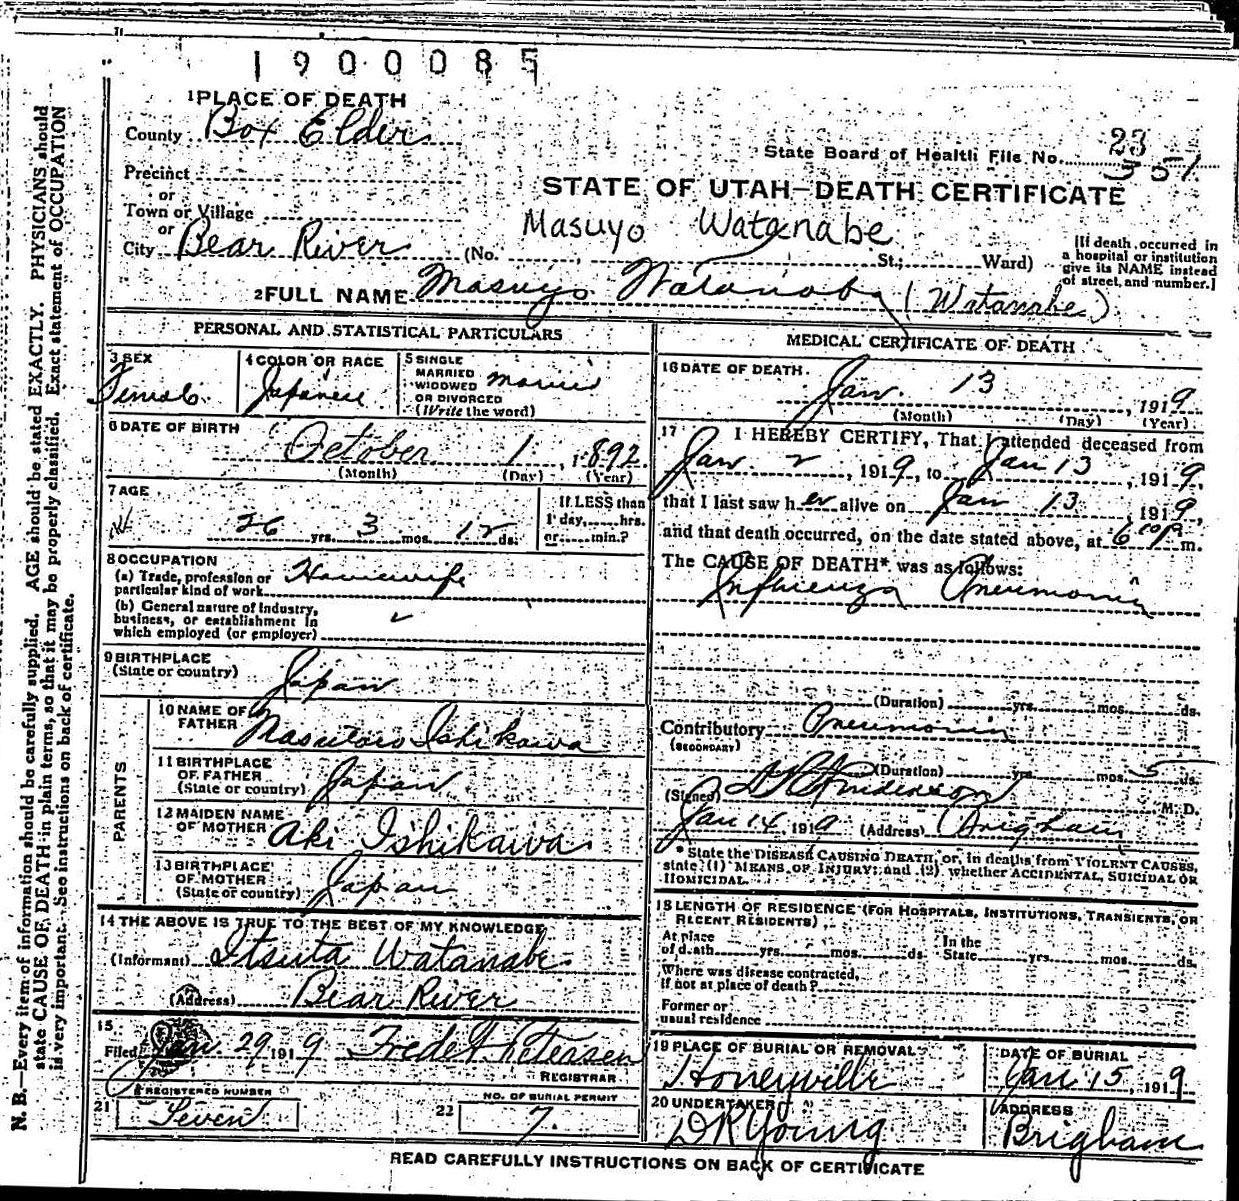 1900085
1 PLACE OF DEATH
County Box Elder
State Board of Health File No. 23
351
Precinct
or
Town or Village
or
City Bear River
STATE OF UTAH—DEATH CERTIFICATE
Masuyo Watanabe
(No. St.; Ward)
[If death occurred in
a hospital or institution
give its NAME instead
of street and number.]
2 FULL NAME Masuyo Watanabe (Watanabe)
PERSONAL AND STATISTICAL PARTICULARS
3 SEX
Female
4 COLOR OR RACE
Japanese
5 SINGLE
MARRIED
WIDOWED
OR DIVORCED
(Write the word)
6 DATE OF BIRTH
October 1, 1892
(Month) (Day) (Year)
7 AGE
26 yrs. 3 mos. 12 ds.
If LESS than
1 day, hrs.
or min.?
8 OCCUPATION
(a) Trade, profession or
particular kind of work Housewife
(b) General nature of industry,
business, or establishment in
which employed (or employer)
9 BIRTHPLACE
(State or country) Japan
PARENTS
10 NAME OF
FATHER Masutaro Ishikawa
11 BIRTHPLACE
OF FATHER
(State or country) Japan
12 MAIDEN NAME
OF MOTHER Aki Ishikawa
13 BIRTHPLACE
OF MOTHER
(State or country) Japan
14 THE ABOVE IS TRUE TO THE BEST OF MY KNOWLEDGE
(Informant) Itsuta Watanabe
(Address) Bear River
15
Filed Jan. 29 1919 Fred H Petersen
REGISTRAR
REGISTERED NUMBER
21 Seven
NO. OF BURIAL PERMIT
22 7.
MEDICAL CERTIFICATE OF DEATH
16 DATE OF DEATH.
Jan. 13, 1919
(Month) (Day) (Year)
17 I HEREBY CERTIFY, That I attended deceased from
Jan. 2, 1919, to Jan 13, 1919,
that I last saw her alive on Jan 13, 1919,
and that death occurred, on the date stated above, at 6 m.
The CAUSE OF DEATH* was as follows:
Influenza Pneumonia
(Duration) yrs. mos. ds.
Contributory Pneumonia
(SECONDARY)
(Duration) yrs. mos. 5 ds.
(Signed) Anderson M. D.
Jan 14 1919 (Address) Brigham
* State the DISEASE CAUSING DEATH, or, in deaths from VIOLENT CAUSES,
state (1) MEANS OF INJURY; and (2) whether ACCIDENTAL, SUICIDAL OR
HOMICIDAL.
18 LENGTH OF RESIDENCE (FOR HOSPITALS, INSTITUTIONS, TRANSIENTS, OR
RECENT RESIDENTS)
At place
of death yrs. mos. ds.
In the
State yrs. mos. ds.
Where was disease contracted,
if not at place of death?
Former or
usual residence
19 PLACE OF BURIAL OR REMOVAL
Honeyville
DATE OF BURIAL
Jan 15, 1919
20 UNDERTAKER
DR Young
ADDRESS
Brigham
READ CAREFULLY INSTRUCTIONS ON BACK OF CERTIFICATE
N. B.—Every item of information should be carefully supplied. AGE should be stated EXACTLY. PHYSICIANS should
state CAUSE OF DEATH in plain terms, so that it may be properly classified. Exact statement of OCCUPATION
is very important. See instructions on back of certificate.